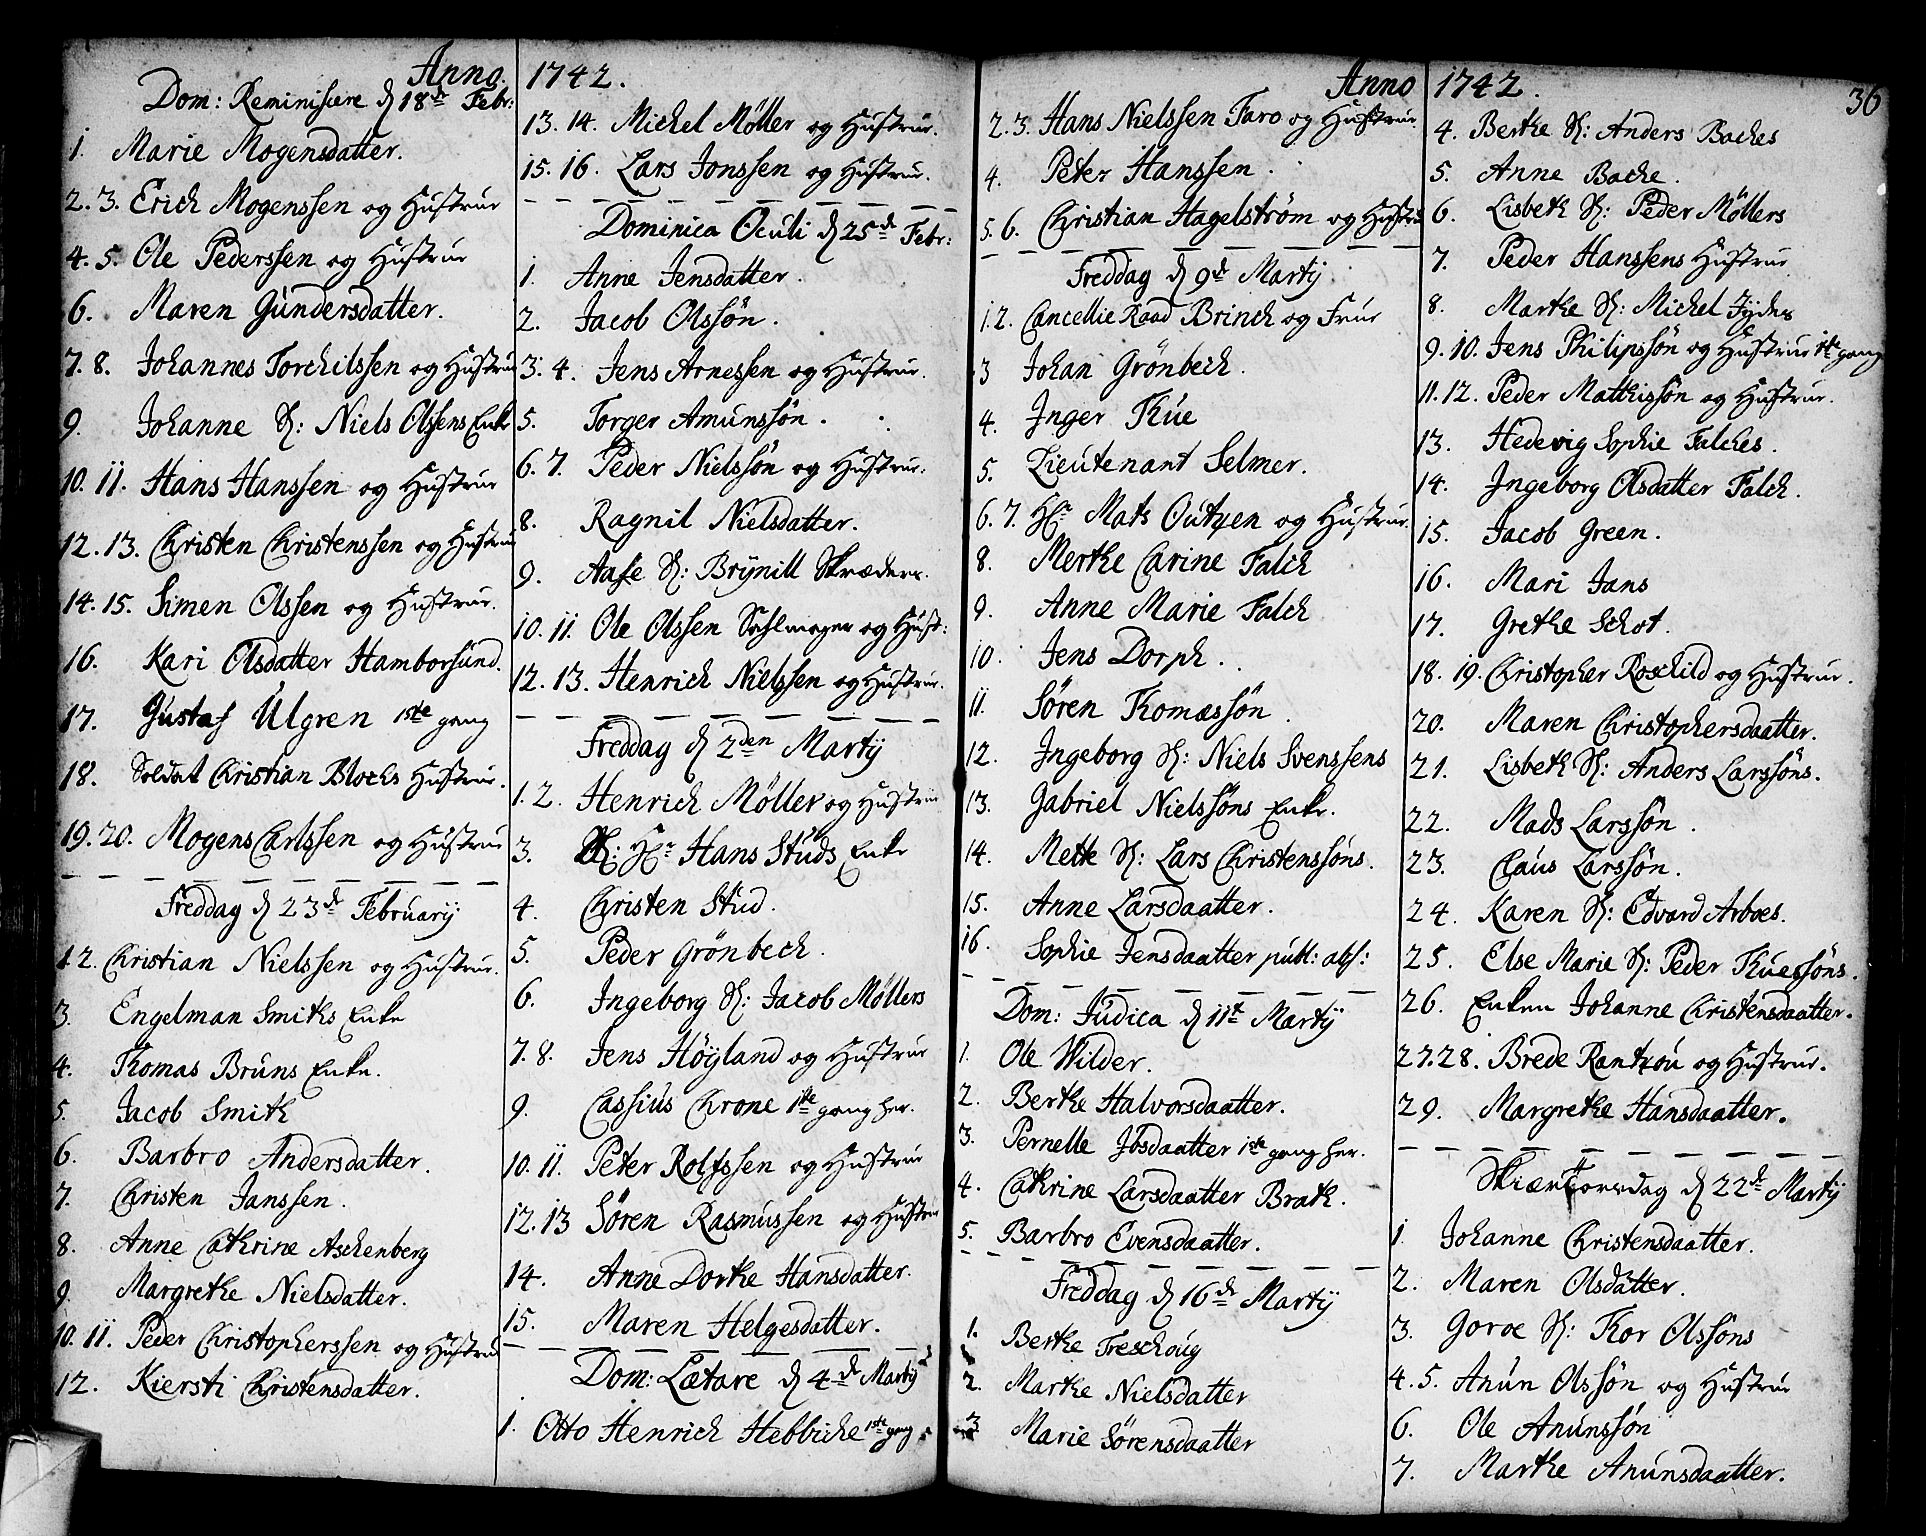 Anno 1742.
Dom: Reminiscere d 18de Febr:
1. Marie Mogensdatter.
2. 3. Erich Mogenssen og Hustrue
4. 5. Ole Pederssen og Hustrue
6. Maren Gundersdatter.
7. 8. Johannes Torchilssen og Hustrue
9. Johanne S: Niels Olsens Enke
10. 11. Hans Hanssen og Hustrue
12. 13. Christen Christenssen og Hustrue
14. 15. Simen Olssen og Hustrue.
16. Kari Olsdatter Hamborsund.
17. Gustaf Ulgren 1ste gang
18. Soldat Christian Blochs Hustrue.
19. 20. Mogens Carlssen og Hustrue
Freddag d 23de Februarij
1. 2. Christian Nielssen og Hustrue.
3. Engelman Smiths Enke
4. Thomas Bruns Enke.
5. Jacob Smith
6. Barbro Andersdatter.
7. Christen Janssen.
8. Anne Cathrine Aschenberg
9. Margrethe Nielsdatter.
10. 11. Peder Christopherssen og Hustrue
12. Kiersti Christensdatter.
13. 14. Michel Møller og Hustrue.
15. 16. Lars Jonssen og Hustrue.
Dominica Oculi d 25de Febr:
1. Anne Jensdatter.
2. Jacob Olssøn.
3. 4. Jens Arnessen og Hustrue.
5. Torger Amunssøn.
6. 7. Peder Nielssøn og Hustrue.
8. Ragnil Nielsdatter.
9. Aase S: Brynill Skræders.
10. 11. Ole Olssen Sahlmager og Hust:
12. 13. Henrich Nielssen og Hustrue.
Freddag d 2den Martij
1. 2. Henrich Møller og Hustrue
3. S: Hr Hans Studs Enke
4. Christen Stud.
5. Peder Grønbech.
6. Ingeborg S: Jacob Møllers
7. 8. Jens Høyland og Hustrue
9. Cassius Chrone 1ste gang her.
10. 11. Peter Rolfssen og Hustrue
12. 13 Søren Rasmussen og Hustrue
14. Anne Dorthe Hansdatter.
15. Maren Helgesdatter.
Dom: Lætare d 4de Martij
1. Otto Henrich Hebbiche 1ste gang
Anno 1742. 36
2. 3. Hans Nielssen Faro og Hustrue
4. Peter Hanssen.
5. 6. Christian Hagelstrøm og Hustrue
Freddag d 9de Martij
1. 2. Cancellie Raad Brinch og Frue
3 Johan Grønbech.
4. Inger Thue
5. Lieutenant Selmer.
6. 7. Hr Mats Outzen og Hustrue.
8. Merthe Carine Falch
9. Anne Marie Falch
10. Jens Dorph.
11. Søren Thomassøn.
12. Ingeborg S: Niels Svenssens
13. Gabriel Nielssøns Enke.
14. Mette S: Lars Christenssøns.
15. Anne Larsdaatter.
16. Sophie Jensdaatter publ: abs:
Dom: Judica d 11te Martij
1. Ole Wilder.
2. Berthe Halvorsdaatter.
3. Pernelle Ibsdaatter 1ste gang her.
4. Cathrine Larsdaatter Brath.
5. Barbro Evensdaatter.
Freddag d 16de Martij
1. Berthe Treschoug
2. Marthe Nielsdatter
3 Marie Sørensdaatter
4. Berthe S: Anders Baches
5. Anne Bache.
6. Lisbeth S: Peder Møllers
7. Peder Hanssens Hustrue
8. Marthe S: Michel Jydes
9. 10. Jens Philipssøn og Hustrue 1ste gang
11. 12. Peder Matthissøn og Hustrue.
13. Hedevig Sophie Falches.
14. Ingeborg Olsdatter Falch.
15. Jacob Green.
16. Mari Jans
17. Grethe Schot.
18. 19. Christopher Roschild og Hustrue.
20. Maren Christophersdaatter.
21. Lisbeth S: Anders Larssøns.
22. Mads Larssøn.
23. Claus Larssøn.
24. Karen S: Edvard Arboes.
25. Else Marie S: Peder Thuessøns.
26. Enken Johanne Christensdaatter.
27. 28. Brede Rantzou og Hustrue.
29. Margrethe Hansdaatter.
Skiærtorsdag d 22de Martij
1. Johanne Christensdaatter.
2. Maren Olsdatter.
3. Goroe S: Thor Olssøns
4. 5. Anun Olssøn og Hustrue
6. Ole Anunssøn
7. Marthe Anunsdaatter.